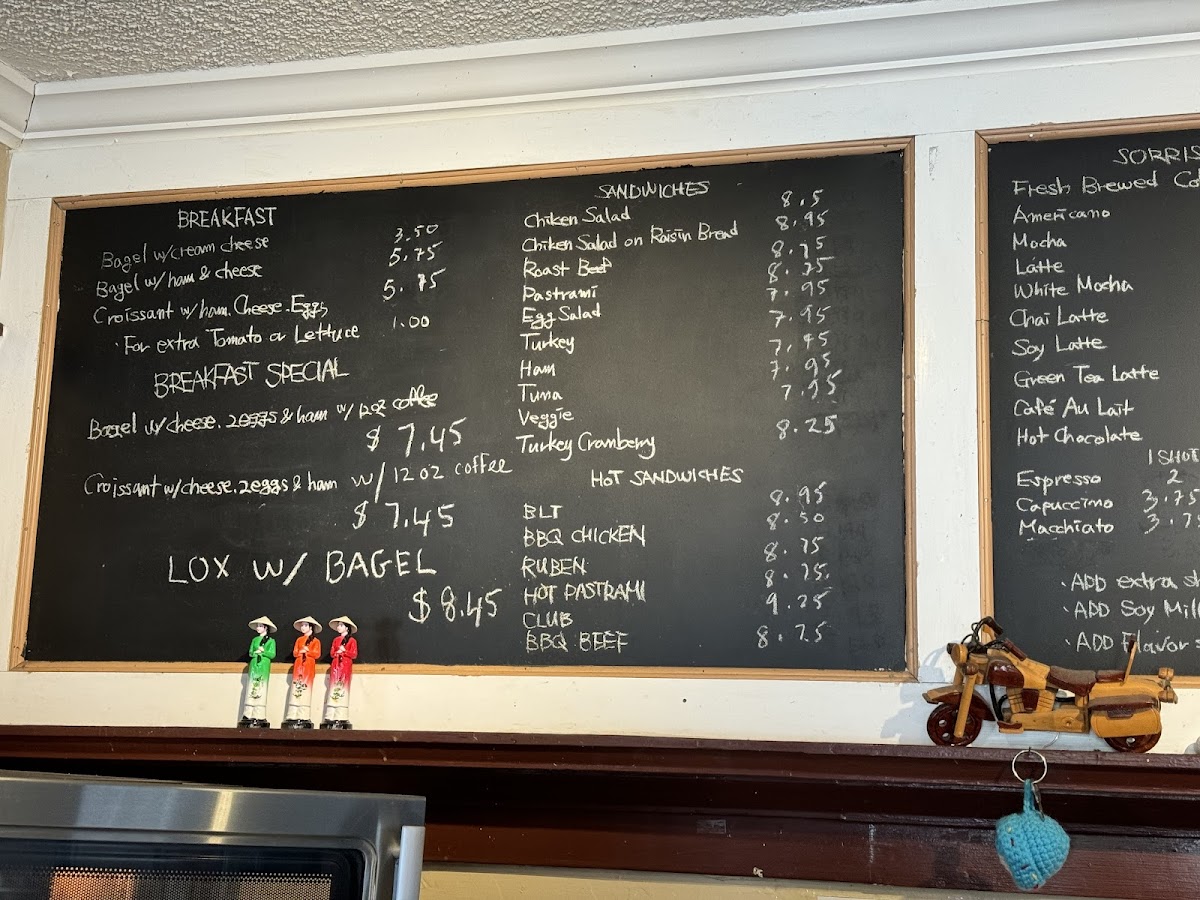 BREAKFAST
Bagel w/cream cheese 3.50
Bagel w/ham & cheese 5.75
Croissant w/ham. Cheese. Eggs 5.75
· For extra Tomato or Lettuce 1.00
BREAKFAST SPECIAL
Bagel w/cheese. 2eggs & ham w/ 12oz coffee
$ 7.45
Croissant w/cheese. 2eggs & ham w/ 12oz coffee
$ 7.45
LOX W/ BAGEL
$ 8.45
SANDWICHES
Chiken Salad 8.5
Chiken Salad on Raisin Bread 8.95
Roast Beef 8.75
Pastrami 8.75
Egg Salad 7.95
Turkey 7.95
Ham 7.45
Tuna 7.95
Veggie 7.95
Turkey Cranberry 8.25
HOT SANDWICHES
BLT 8.95
BBQ CHICKEN 8.50
RUBEN 8.75
HOT PASTRAMI 8.75
CLUB 9.25
BBQ BEEF 8.75
SORRIS
Fresh Brewed Co
Americano
Mocha
Latte
White Mocha
Chai Latte
Soy Latte
Green Tea Latte
Café Au Lait
Hot Chocolate
1 SHOT
Espresso 2
Capuccino 3.75
Macchiato 3.7
· ADD extra sh
· ADD Soy Mil
· ADD Flavor s